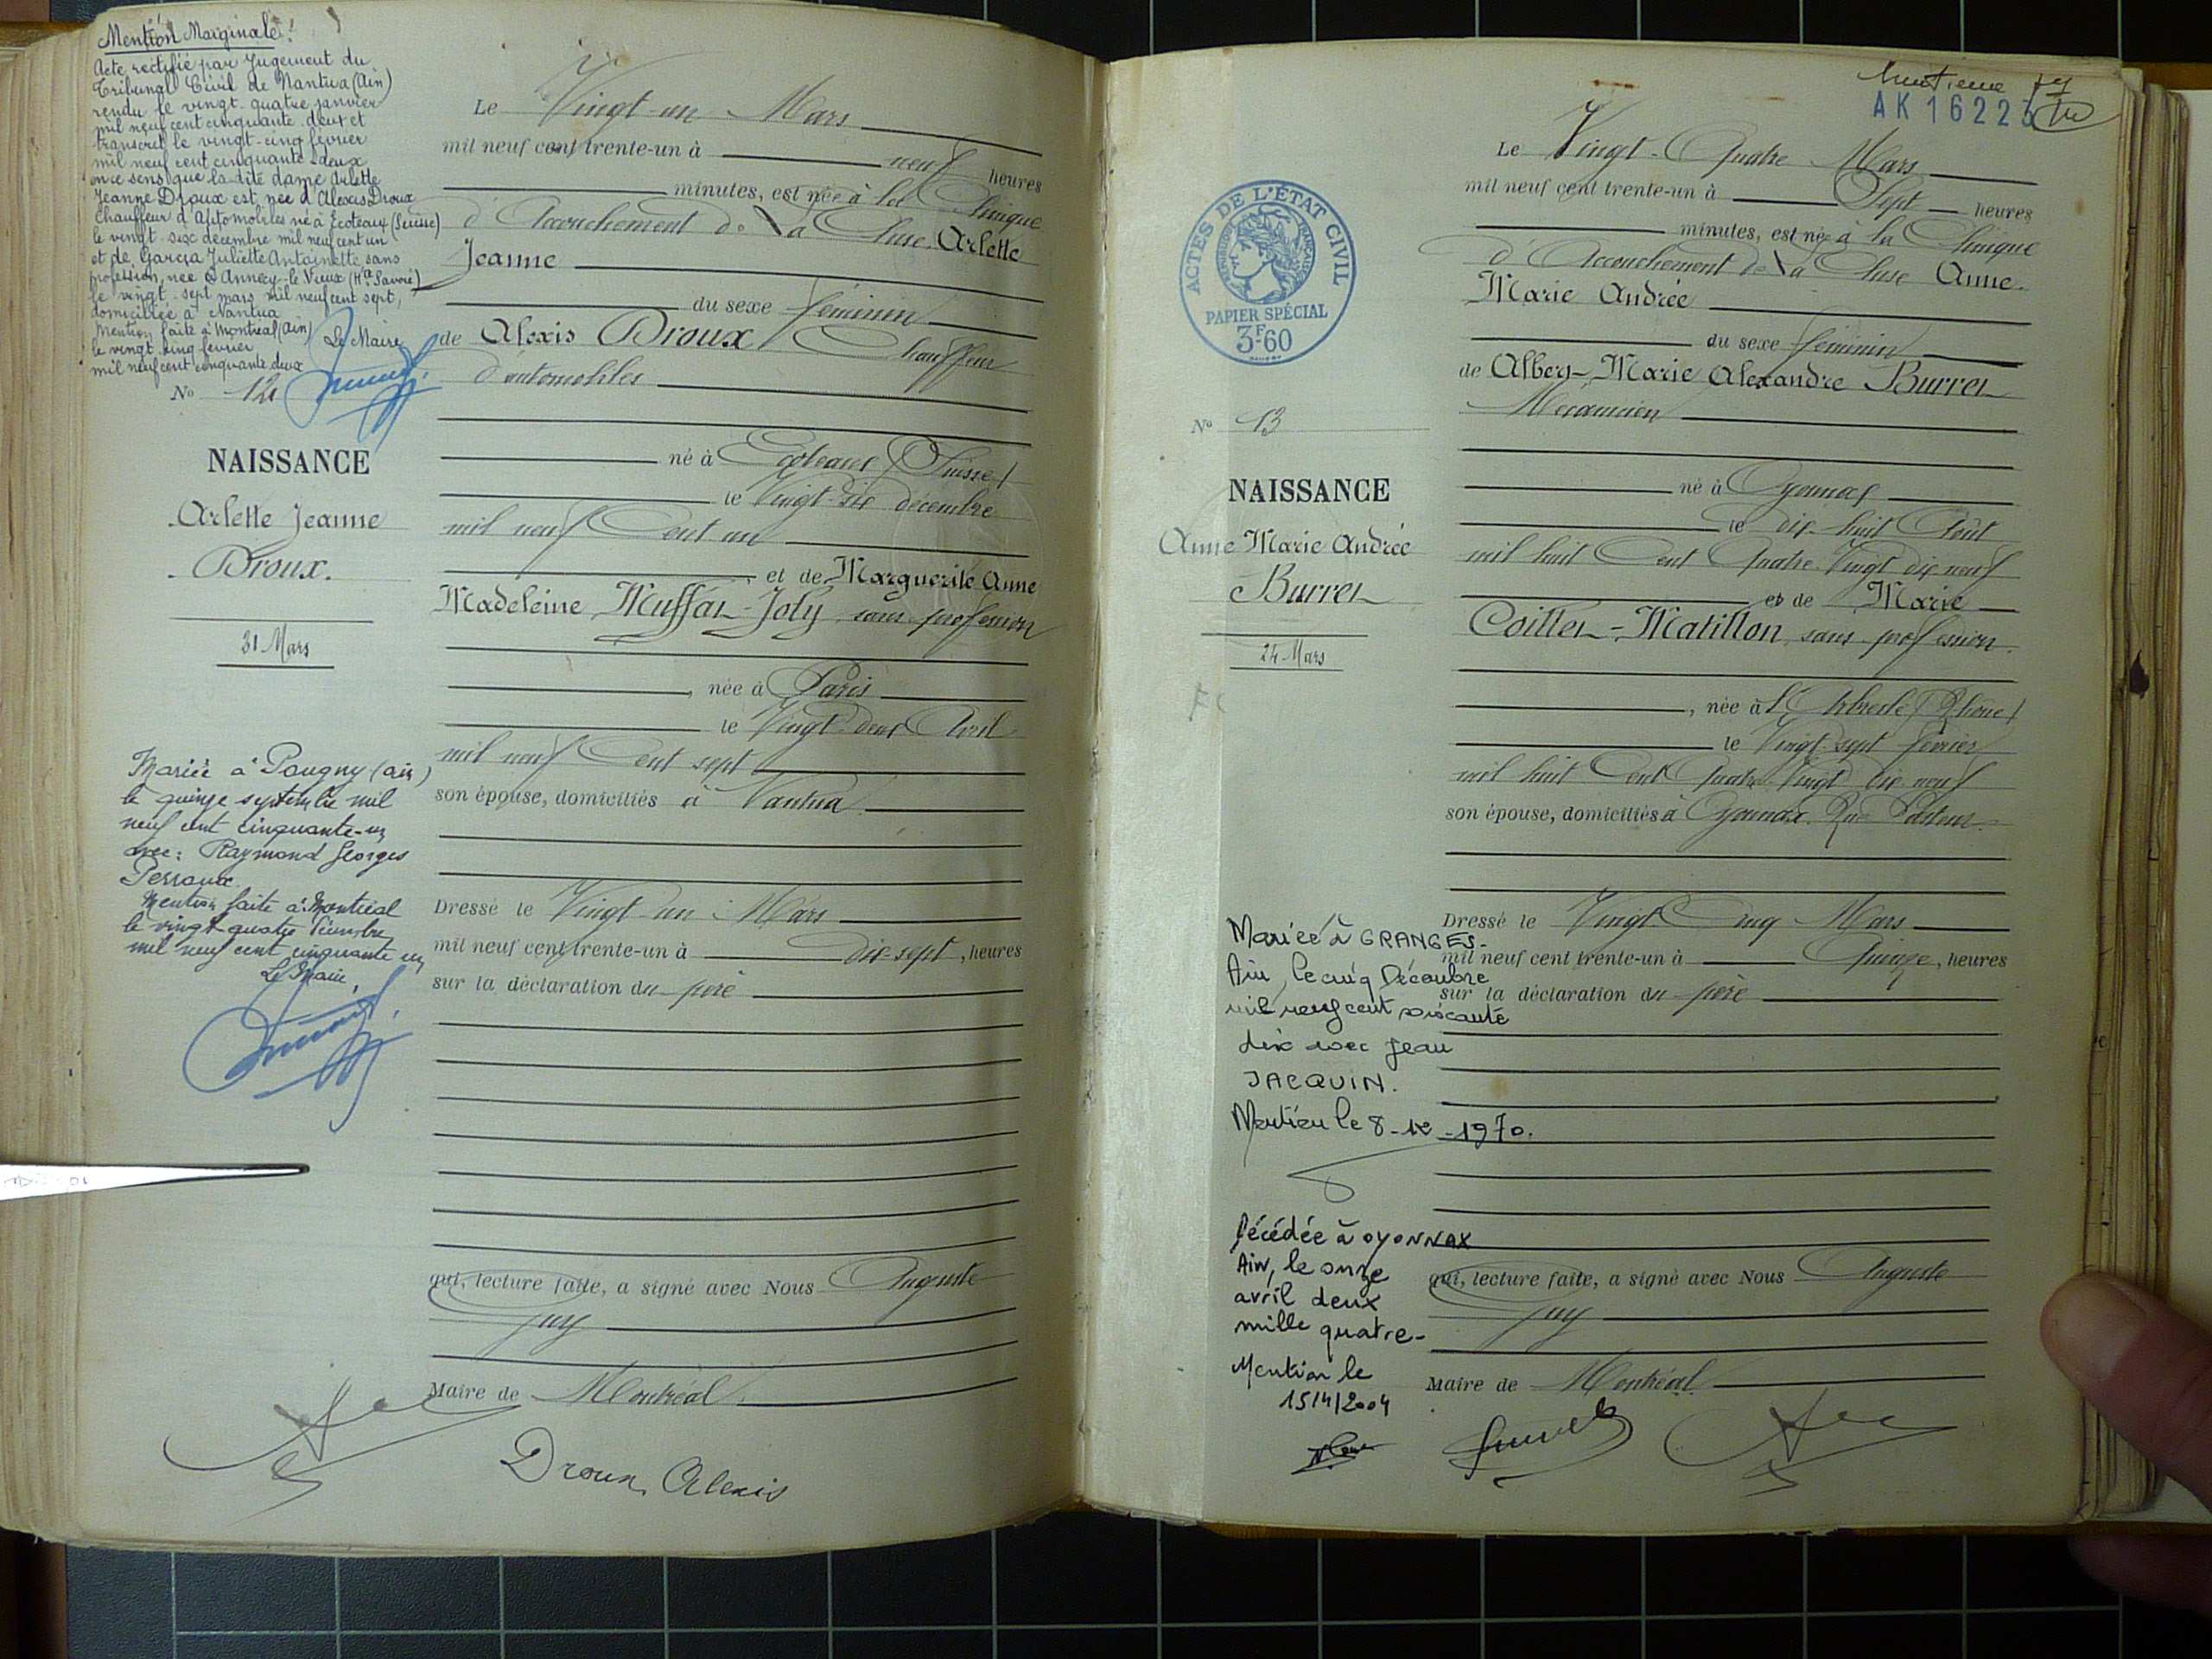 Mention Marginale :
Acte rectifié par Jugement du
Tribunal Civil de Nantua (Ain)
rendu le vingt-quatre janvier
mil neuf cent cinquante deux et
transcrit le vingt-cinq février
mil neuf cent cinquante deux
en ce sens que la dite dame Arlette
Jeanne Droux est née d'Alexis Droux
Chauffeur d'Automobiles né à Ecoteaux (Suisse)
le vingt-six décembre mil neuf cent un
et de Garcia Juliette Antoinette sans
profession, née à Annecy-le-Vieux (Hte Savoie)
le vingt-sept mars mil neuf cent sept,
domiciliée à Nantua
Mention faite à Montréal (Ain)
le vingt cinq février
mil neuf cent cinquante deux
Le Maire
No 12
NAISSANCE
Arlette Jeanne
Droux.
31 Mars
Mariée à Pougny (Ain)
le quinze septembre mil
neuf cent cinquante-un
avec : Raymond Georges
Perroux
Mention faite à Montréal
le vingt-quatre
mil neuf cent cinquante un
Le Maire,
Le Vingt-un Mars
mil neuf cent trente-un à neuf heures
minutes, est née à la Clinique
d'Accouchement de La Cluse Arlette
Jeanne
du sexe féminin
de Alexis Droux Chauffeur
d'automobiles
né à Ecoteaux (Suisse)
le Vingt-six décembre
mil neuf Cent un
et de Marguerite Anne
Madeleine Muffat-Joly sans profession
, née à Paris
le Vingt-deux Avril
mil neuf Cent sept
son épouse, domiciliés à Nantua
Dressé le Vingt-un Mars
mil neuf cent trente-un à dix-sept, heures
sur la déclaration du père
qui, lecture faite, a signé avec Nous Auguste
Juy
Maire de Montréal
Droux Alexis
huitième
AK 16223
ACTES DE L'ÉTAT CIVIL
RÉPUBLIQUE FRANÇAISE
PAPIER SPÉCIAL
3F60
No 13
NAISSANCE
Anne Marie Andrée
Burret
24 Mars
Mariée à GRANGES-
Ain, le cinq Décembre
mil neuf cent soixante
dix avec Jean
JACQUIN.
Mention le 8-12-1970.
Décédée à OYONNAX
Ain, le onze
avril deux
mille quatre-
Mention le
15/4/2004
Le Vingt-Quatre Mars
mil neuf cent trente-un à Sept heures
minutes, est née à la Clinique
d'Accouchement de La Cluse Anne-
Marie Andrée
du sexe féminin
de Albery-Marie Alexandre Burret
Mécanicien
né à Oyonnax
le dix-huit Août
mil huit Cent Quatre-Vingt dix neuf
et de Marie
Coiller-Matillon sans profession.
, née à L'Arbresle (Rhône)
le Vingt-sept février
mil huit Cent Quatre-Vingt dix neuf
son épouse, domiciliés à Oyonnax Rue Pasteur
Dressé le Vingt-Cinq Mars
mil neuf cent trente-un à Quinze, heures
sur la déclaration du père
qui, lecture faite, a signé avec Nous Auguste
Juy
Maire de Montréal